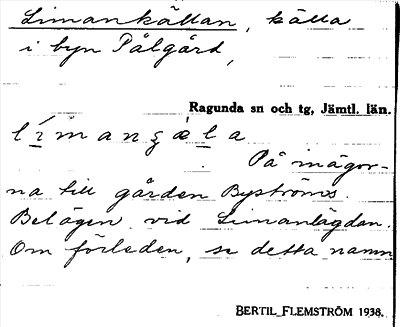 Limankällan, källa
i byn Pålgård,
Ragunda sn och tg, Jämtl. län.
l í m a n ʒ æ l a
På inägor-
na till gården Byströms.
Belägen vid Limanlägdan.
Om förleden, se detta namn
BERTIL FLEMSTRÖM 1938.